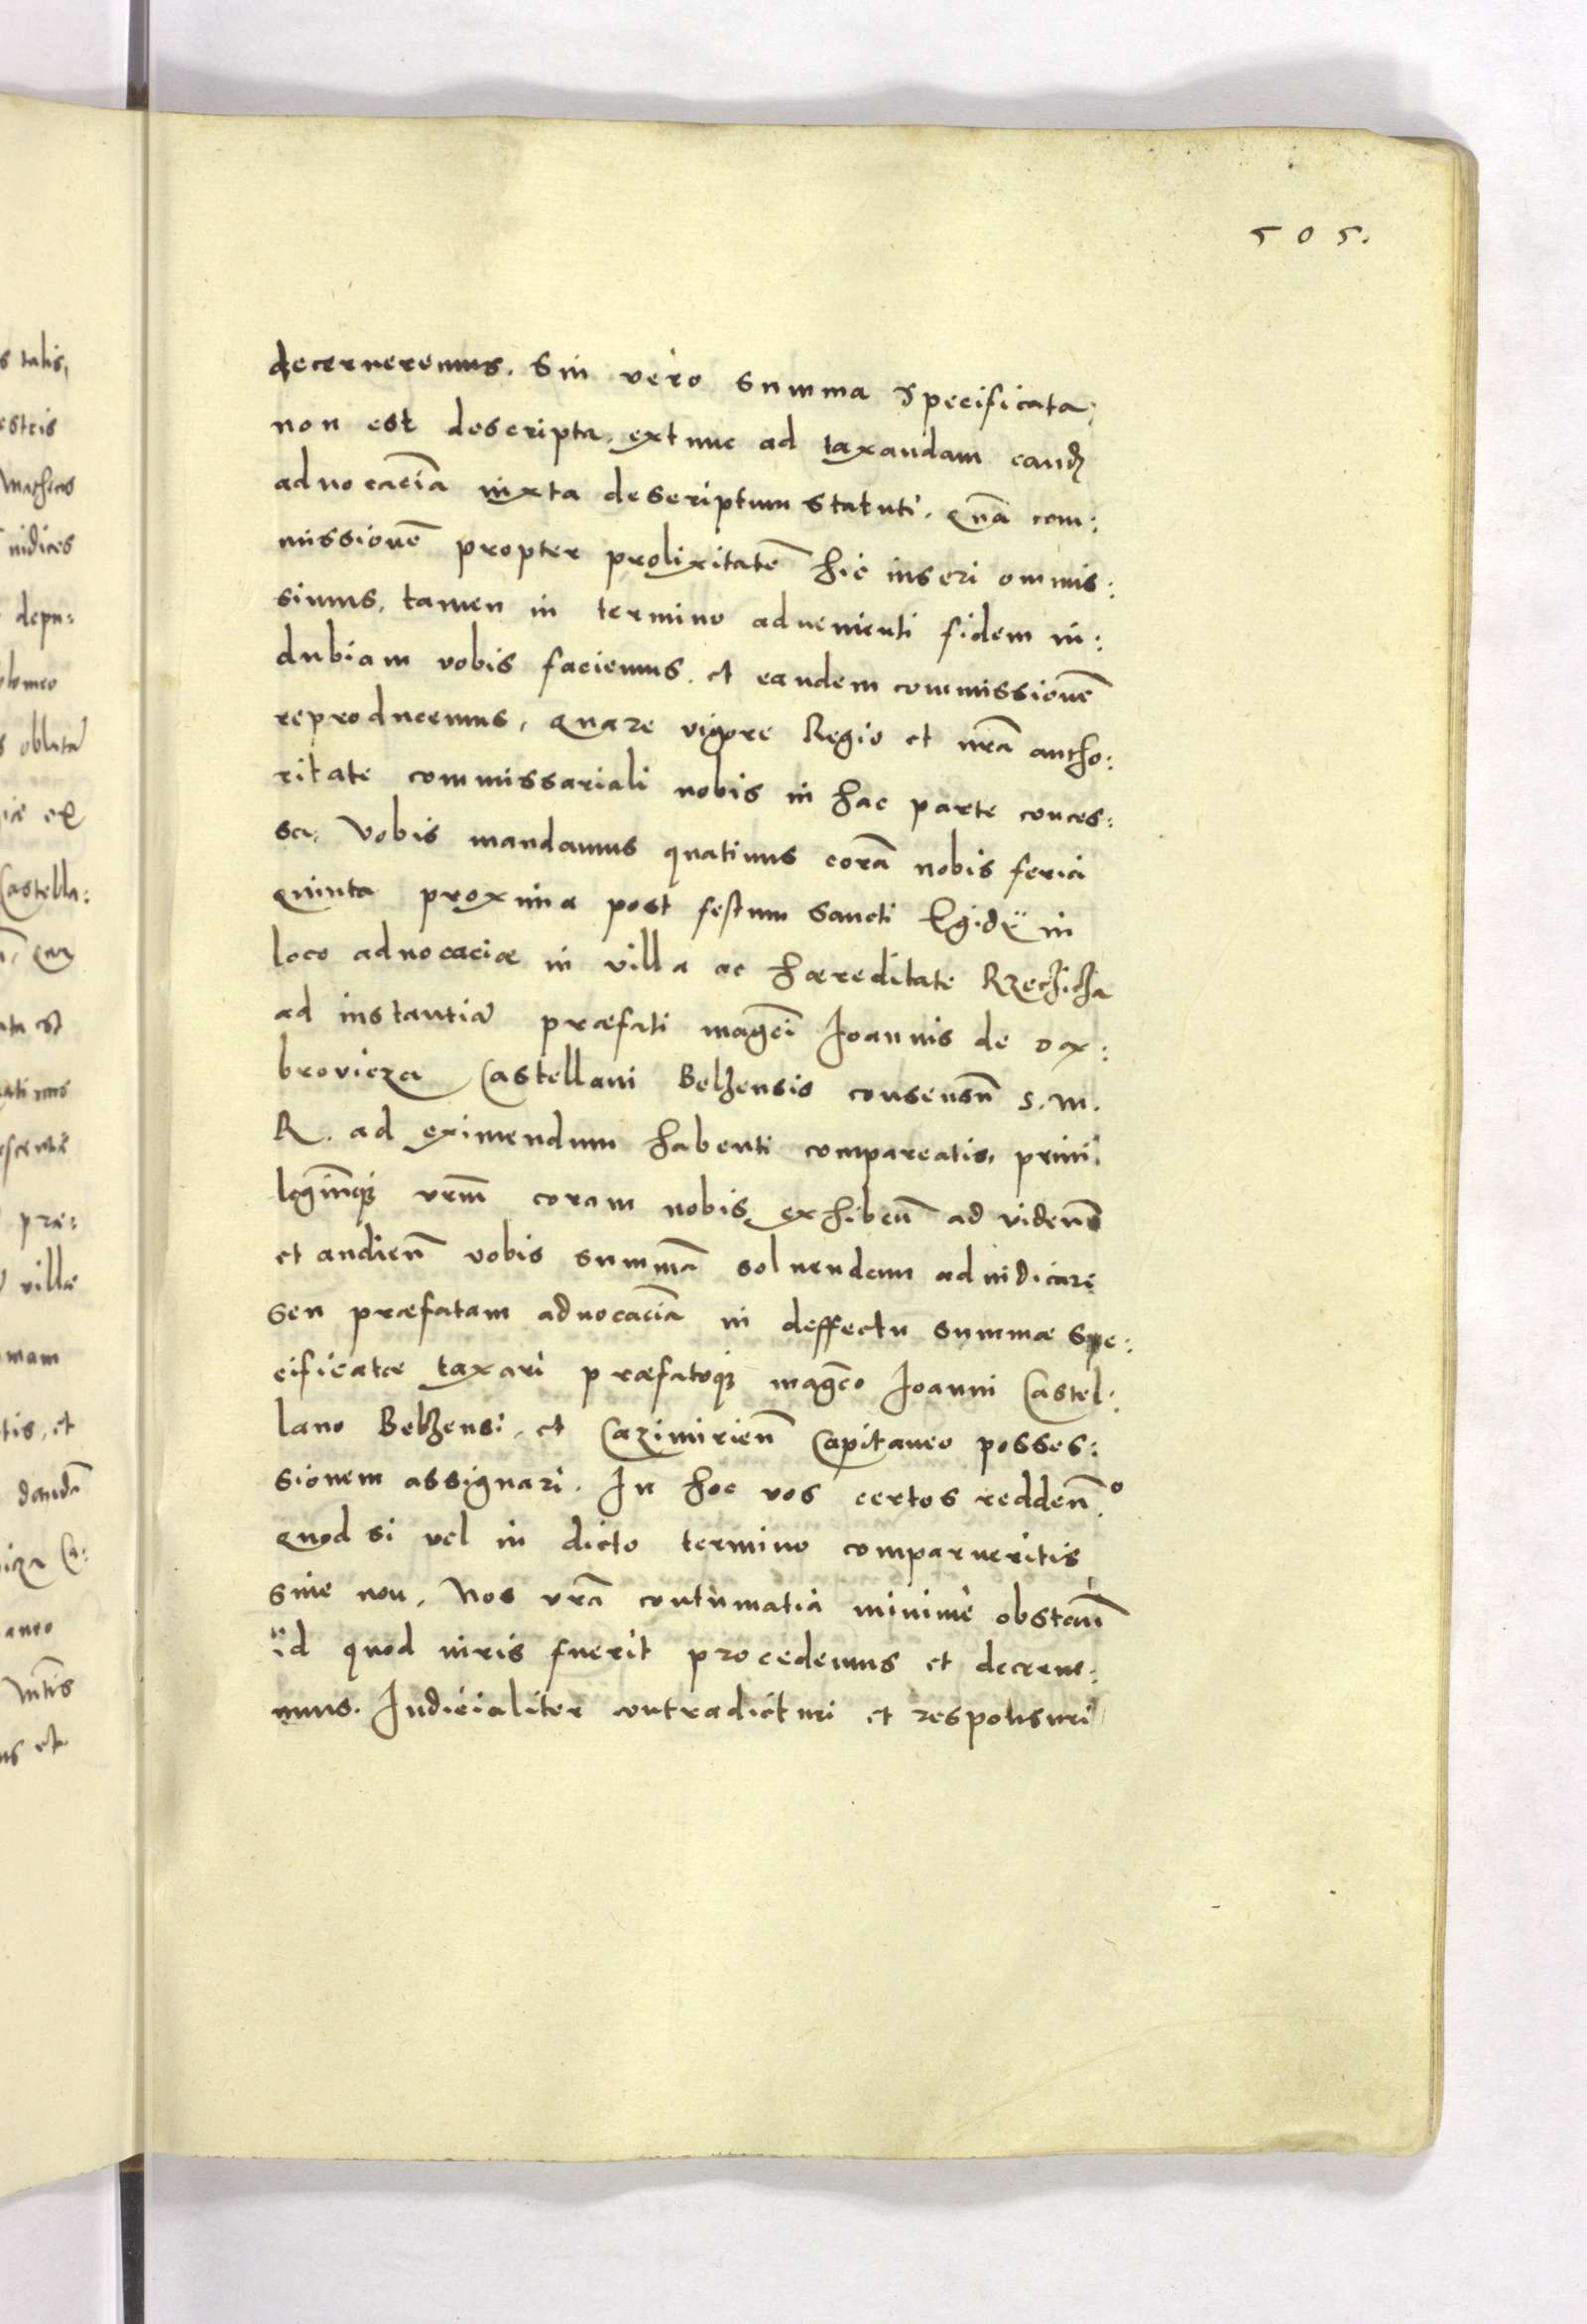 505.
decerneremus. Sin vero summa specificata,
non est descripta, extunc ad taxandam eandꝫ
aduocaciã iuxta descriptum statuti. Quã com:
missionẽ propter prolixitatẽ hic inseri ommis:
simus, tamen in termino aduenienti fidem in:
dubiam vobis faciemus. et eandem commissionẽ
reproducemus, Quare vigore Regio et nrã autho:
ritate commissariali nobis in hac parte conces:
sa, Vobis mandamus quatinus corã nobis feria
quinta proxima post festum sancti Egidÿ in
loco aduocaciæ in villa ac hæreditate Rzechicha
ad instantiã præfati magci Joannis de Dą:
browicza Castellani Belzensis consensũ S. M.
R. ad eximendum habenti compareatis, priui:
legiũqꝫ vrm̃ coram nobis exhibeñ ad videnď
et audieñ vobis summã soluendam adiudicari
seu præfatam aduocaciã in deffectu summæ spe:
cificatæ taxari præfatoqꝫ magco Joanni Castel:
lano Belzensi, et Cazimirieñ Capitaneo posses:
sionem assignari. In hoc vos certos reddeñ.o
Quod si vel in dicto termino comparueritis
siue non, Nos vrã contumatia minime obstañ
id quod iuris fuerit procedemus et decerne:
mus. Judicialiter contradicturi et responsuri